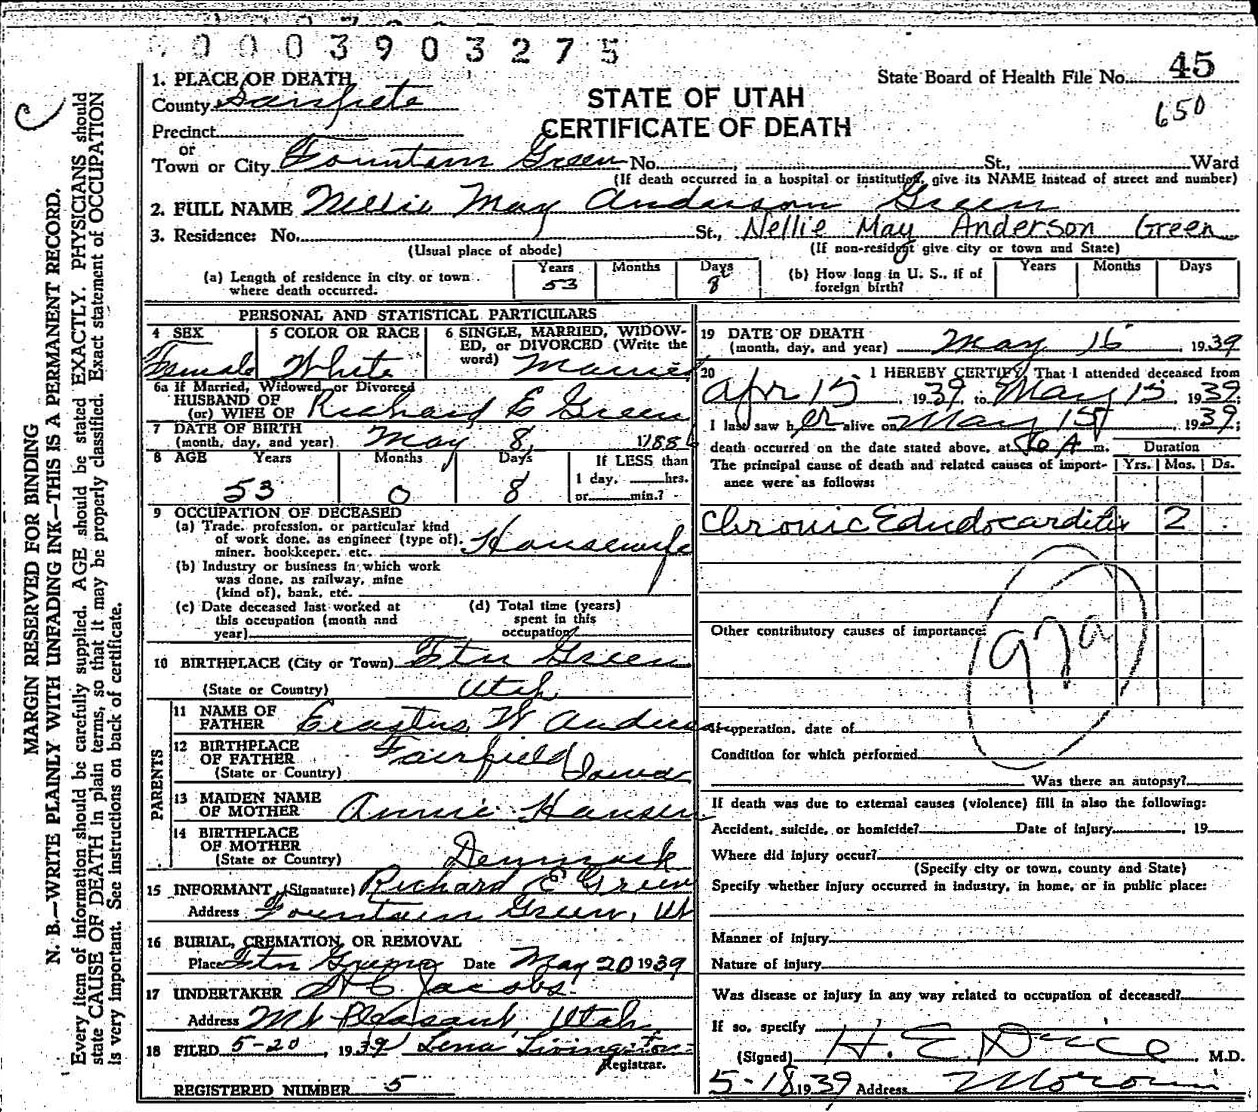 0003903275
State Board of Health File No. 45
650
STATE OF UTAH
CERTIFICATE OF DEATH
1. PLACE OF DEATH
County Sanpete
Precinct
or
Town or City Fountain Green No. , St., Ward
(If death occurred in a hospital or institution, give its NAME instead of street and number)
2. FULL NAME Nellie May Anderson Green
3. Residence: No. St., Nellie May Anderson Green
(Usual place of abode) (If non-resident give city or town and State)
(a) Length of residence in city or town where death occurred. Years 53 Months Days 8
(b) How long in U. S., if of foreign birth? Years Months Days
MARGIN RESERVED FOR BINDING
N. B.—WRITE PLAINLY WITH UNFADING INK—THIS IS A PERMANENT RECORD.
Every item of information should be carefully supplied. AGE should be stated EXACTLY. PHYSICIANS should
state CAUSE OF DEATH in plain terms, so that it may be properly classified. Exact statement of OCCUPATION
is very important. See instructions on back of certificate.
PERSONAL AND STATISTICAL PARTICULARS
4 SEX Female
5 COLOR OR RACE White
6 SINGLE, MARRIED, WIDOWED, or DIVORCED (Write the word) Married
6a If Married, Widowed, or Divorced
HUSBAND OF
(or) WIFE OF Richard E Green
7 DATE OF BIRTH
(month, day, and year) May 8, 1886
8 AGE Years Months Days If LESS than
53 0 8 1 day, hrs.
or min.?
9 OCCUPATION OF DECEASED
(a) Trade, profession, or particular kind
of work done, as engineer (type of), Housewife
miner, bookkeeper, etc.
(b) Industry or business in which work
was done, as railway, mine
(kind of), bank, etc.
(c) Date deceased last worked at
this occupation (month and
year)
(d) Total time (years)
spent in this
occupation
10 BIRTHPLACE (City or Town) Ftn Green
(State or Country) Utah
PARENTS
11 NAME OF
FATHER Erastus W Anderson
12 BIRTHPLACE
OF FATHER Fairfield
(State or Country) Iowa
13 MAIDEN NAME
OF MOTHER Annie Hansen
14 BIRTHPLACE
OF MOTHER
(State or Country) Denmark
15 INFORMANT (Signature) Richard E Green
Address Fountain Green, Ut
16 BURIAL, CREMATION, OR REMOVAL
Place Ftn Green Date May 20 1939
17 UNDERTAKER Jacobs
Address Mt Pleasant, Utah
18 FILED 5-20, 1939 Lena Livingston
Registrar.
REGISTERED NUMBER 5
19 DATE OF DEATH
(month, day, and year) May 16 1939
20 I HEREBY CERTIFY, That I attended deceased from
Apr 15, 1939, to May 15, 1939;
I last saw her alive on May 15, 1939;
death occurred on the date stated above, at A m.
Duration
The principal cause of death and related causes of importance were as follows:
Yrs. Mos. Ds.
Chronic Edudocarditis 2
Other contributory causes of importance:
If operation, date of
Condition for which performed
Was there an autopsy?
If death was due to external causes (violence) fill in also the following:
Accident, suicide, or homicide? Date of injury , 19
Where did injury occur?
(Specify city or town, county and State)
Specify whether injury occurred in industry, in home, or in public place:
Manner of injury
Nature of injury
Was disease or injury in any way related to occupation of deceased?
If so, specify
(Signed) H. E. M.D.
5-18 1939 Address Moroni